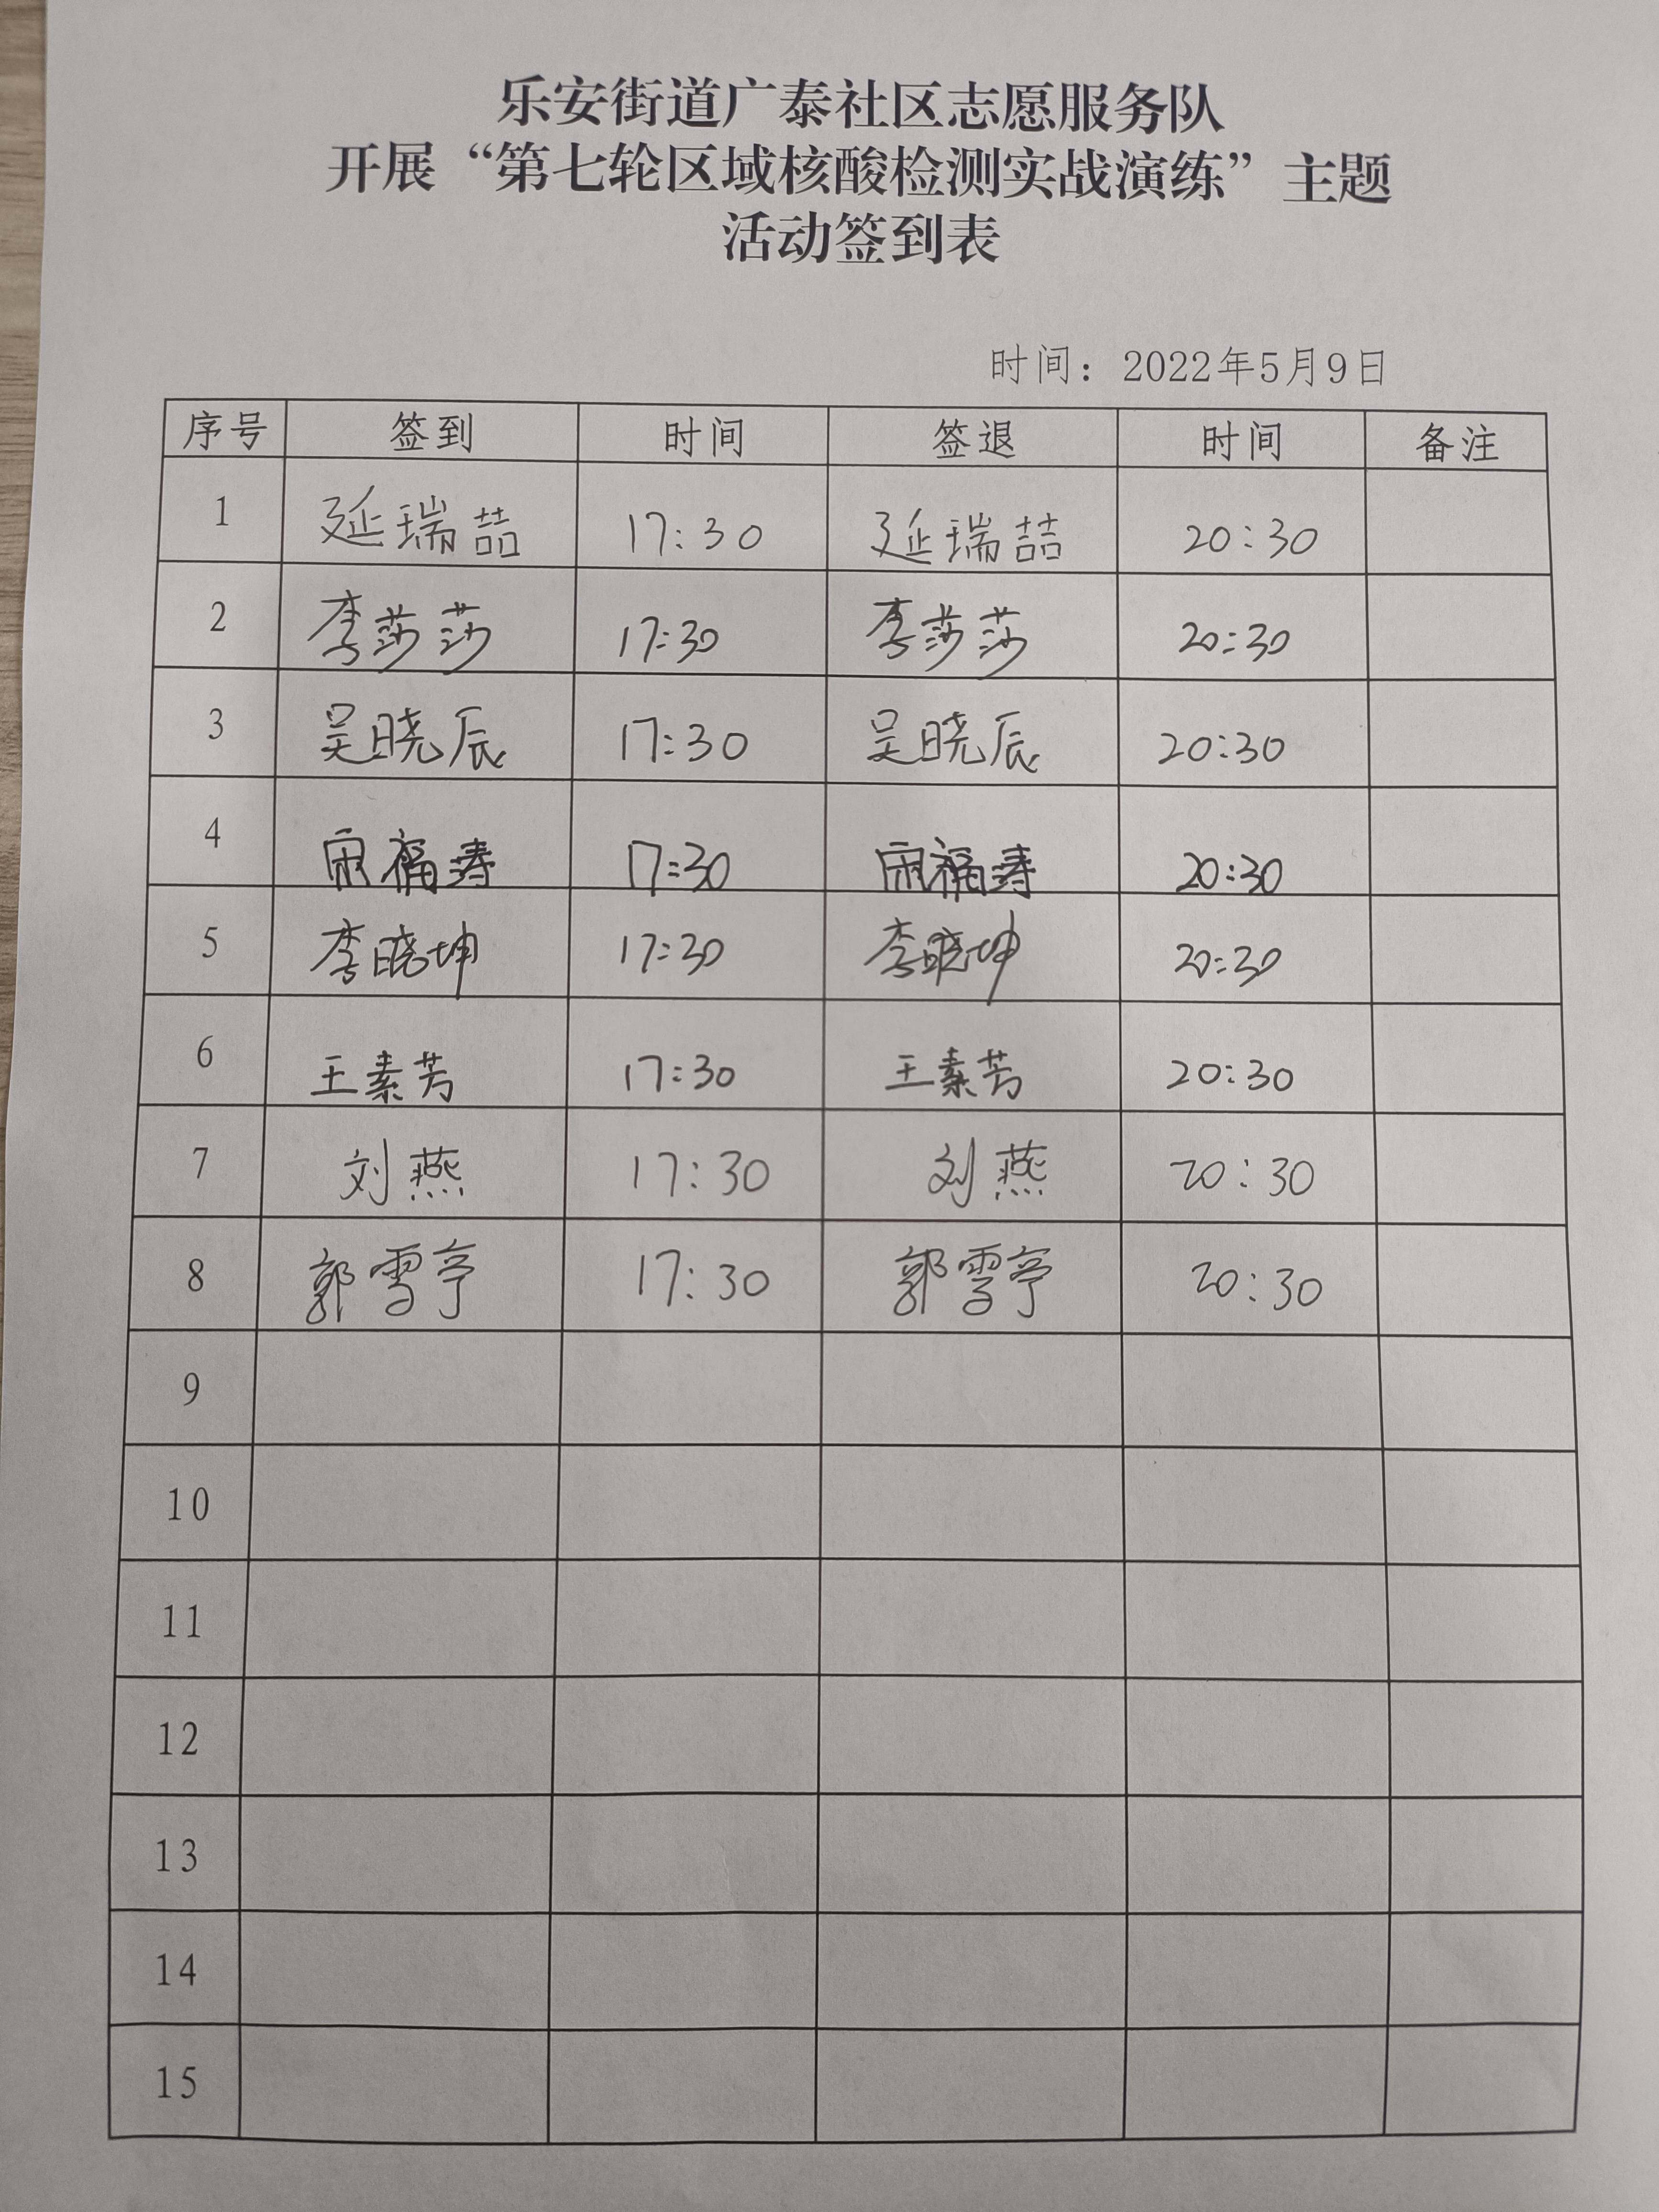 乐安街道广泰社区志愿服务队
开展“第七轮区域核酸检测实战演练”主题
活动签到表
时间：2022年5月9日
序号 签到 时间 签退 时间 备注
1 延瑞喆 17:30 延瑞喆 20:30
2 李莎莎 17:30 李莎莎 20:30
3 吴晓辰 17:30 吴晓辰 20:30
4 福涛 17:30 福涛 20:30
5 李晓坤 17:30 李晓坤 20:30
6 王素芳 17:30 王素芳 20:30
7 刘燕 17:30 刘燕 20:30
8 郭雪亭 17:30 郭雪亭 20:30
9
10
11
12
13
14
15